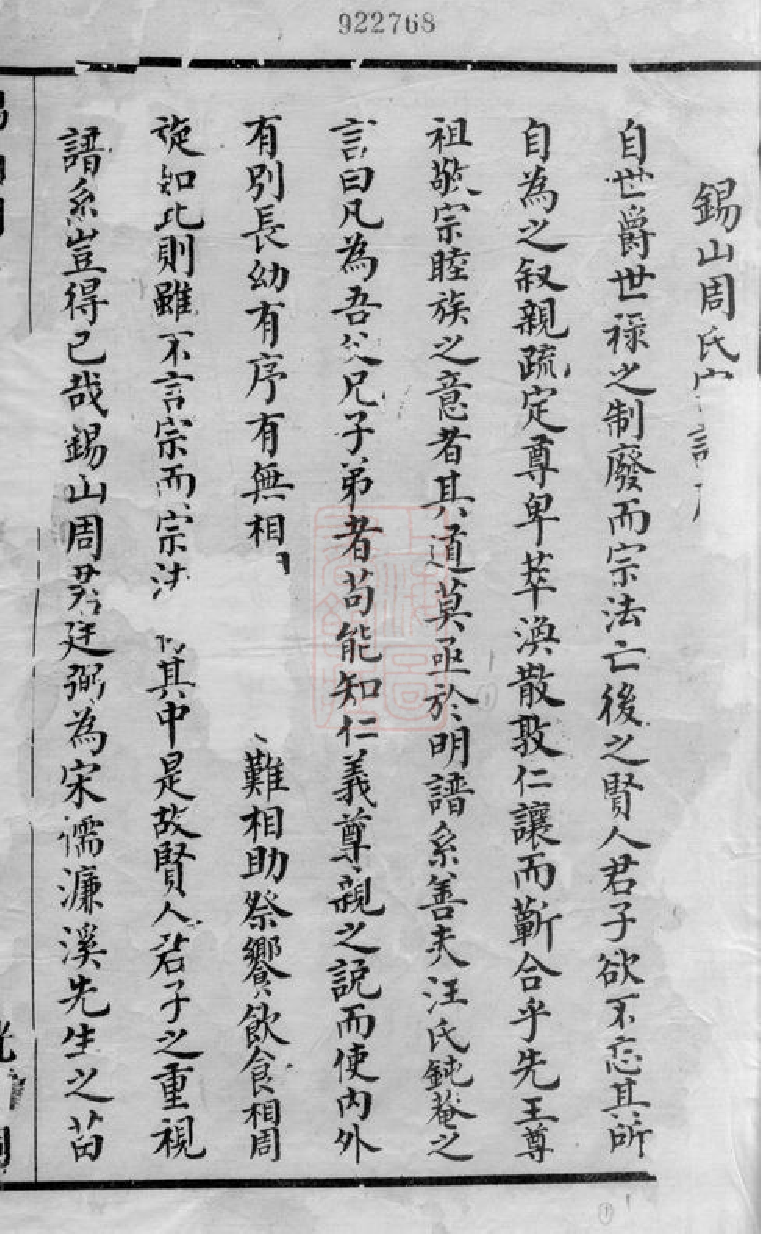 922768
錫山周氏
自世爵世祿之制廢而宗法亡後之賢人君子欲不忘其所
自為之叙親疏定尊卑萃渙散敦仁讓而蘄合乎先王尊
祖敬宗睦族之意者其道莫亟於明譜系善夫汪氏鈍菴之
言曰凡為吾父兄子弟者苟能知仁義尊親之説而使内外
有别長幼有序有無相 難相助祭饗飲食相周
旋如此則雖不言宗而宗法 其中是故賢人君子之重視
譜系豈得已哉錫山周君廷弼為宋儒濂溪先生之苗